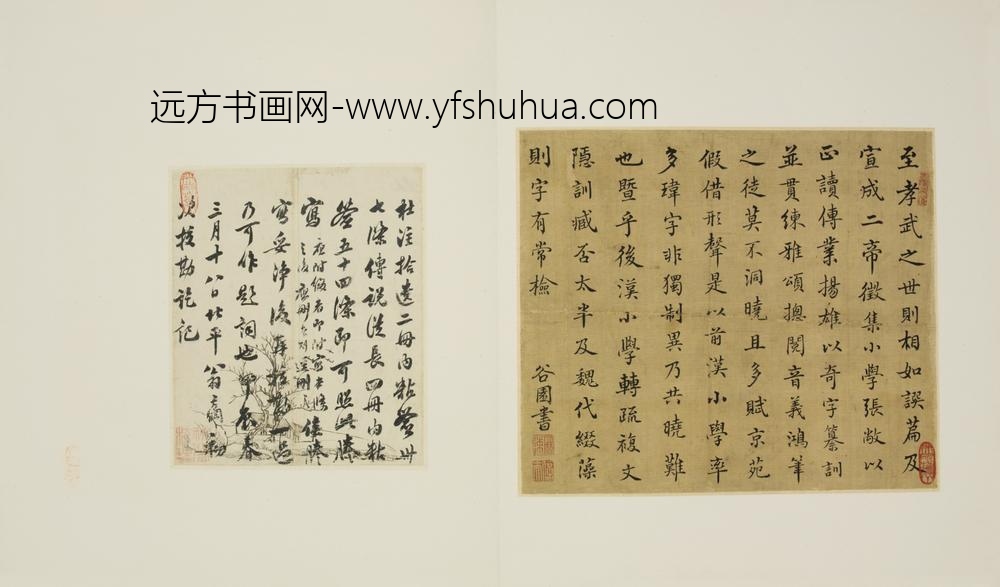 远方书画网-www.yfshuhua.com
至孝武之世則相如譔篇及
宣成二帝徵集小學張敞以
正讀傳業揚雄以奇字纂訓
並貫練雅頌摠閱音義鴻筆
之徒莫不洞曉且多賦京苑
假借形聲是以前漢小學率
多瑋字非獨制異乃共曉難
也暨乎後漢小學轉疏複文
隱訓臧否太半及魏代綴藻
則字有常檢
谷園書
杜注拾遺二冊內粘簽卅
七條傳說法長四冊內粘
簽五十四條即可照此謄
寫
寫妥淨後再
乃可作題詞也 春
三月十八日北平翁
校勘訖記